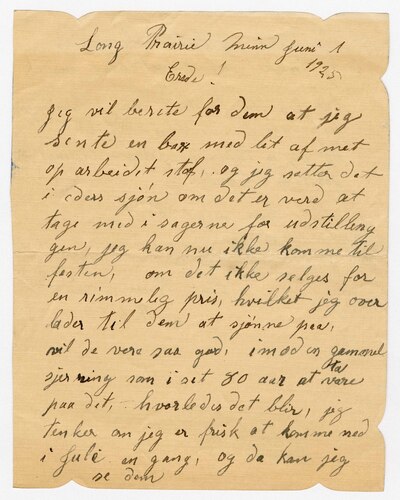 Long Prairie Minn Juni 1
1925
Erede!
Jeg vil berete for dem at jeg
sente en box med lit af met
op arbeidet stof, og jeg setter det
i eders sjön om det er verd at
tage med i sagerne for udstilleng
gen, jeg kan nu ikke komme til
festen, om det ikke selges for
en rimmlig pris, hvilket jeg over
lader til dem at sjönne paa,
vil de vera saa god, imod en gammel
som i set 80 aar at vare
paa det, hvorledes det blir, jeg
tenker om jeg er frisk at komme ned
i Juli en gang, og da kan jeg
se dem